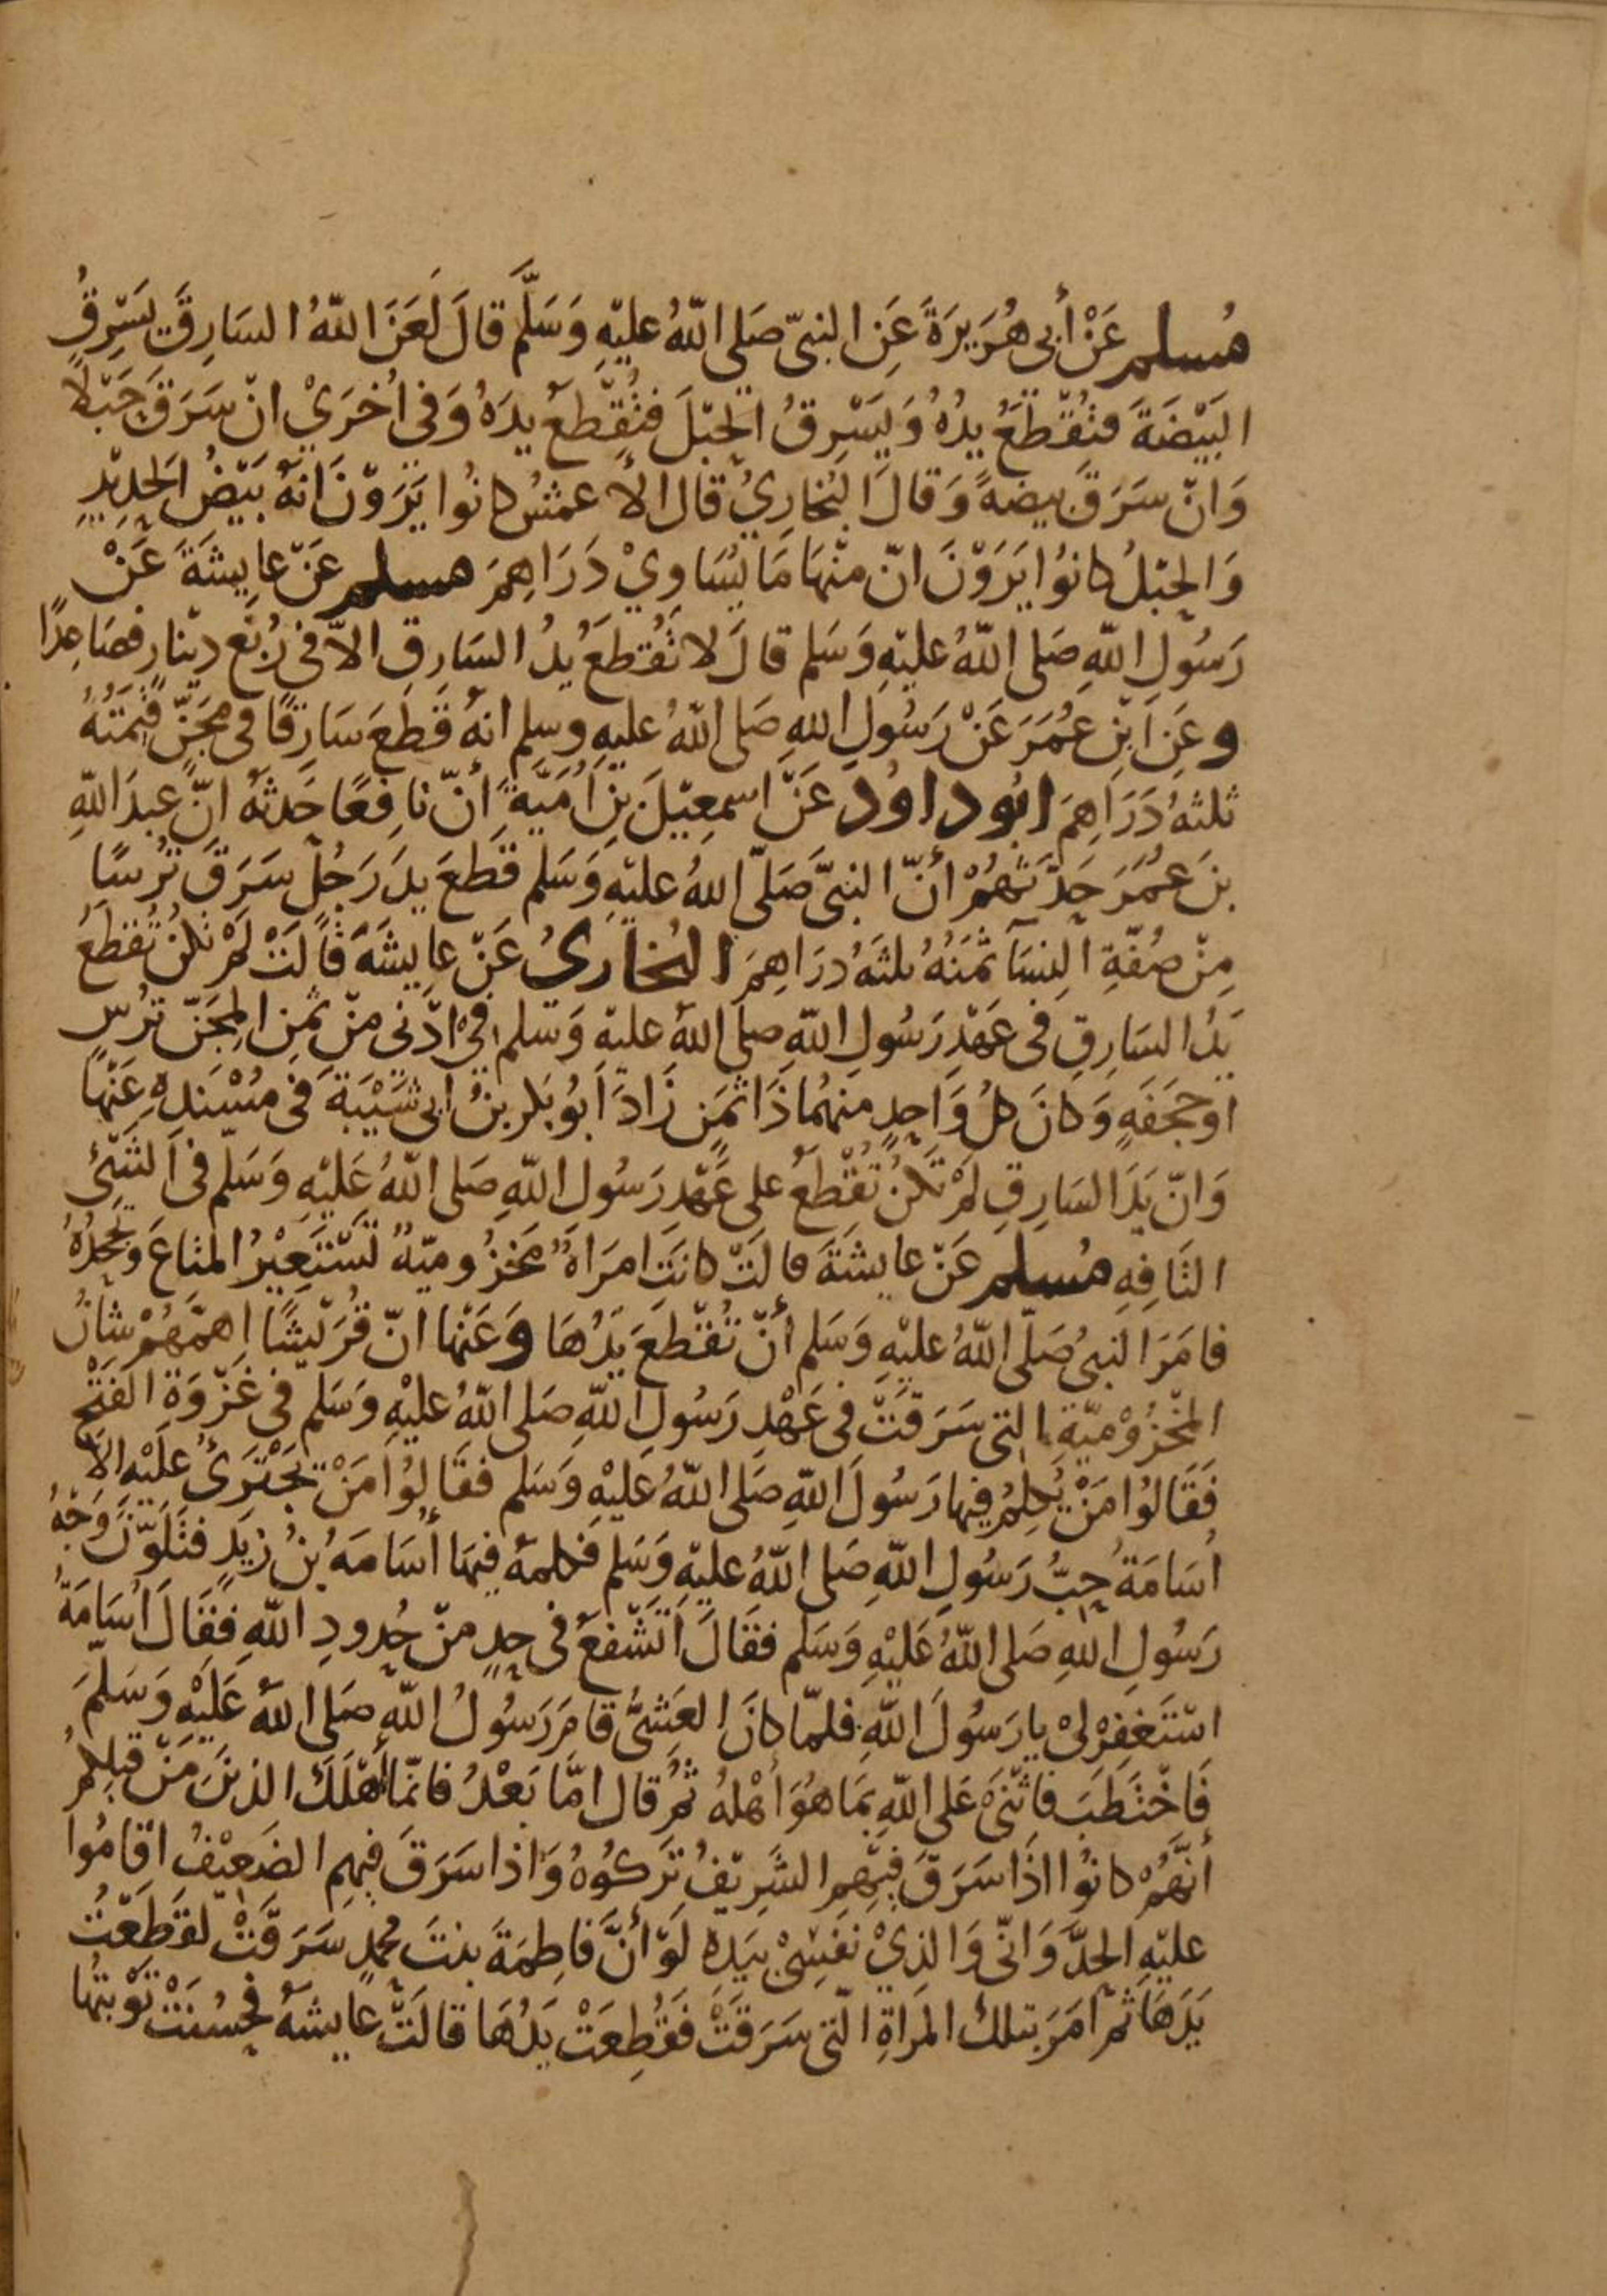 مُسلم عَنْ أَبي هُرَيرَةَ عَنِ النبيّ صَلى اللّهُ عليْهِ وَسَلَّم قالَ لَعَنَ اللّهُ السَارِقَ يَسْرِقُ
البَيْضَةَ فتُقْطَعُ يدُهُ وَيَسْرِقُ الحَبْلَ فتُقْطعُ يدَهُ وَفي أُخرَيْ انْ سَرَقَ حَبْلًا
وَانْ سَرَقَ بيضةً وَقالَ البُخارِيُ قال الأعمشُ كانُوا يَرَوْنَ انهُ بَيْضُ الحَدِيْدِ
وَالحَبْلُ كانُوا يَرَوْنَ انّ منْهَا مَا يُسَاوِيْ دَرَاهِمَ مسلم عَنْ عايِشَةَ عَنْ
رَسُولِ اللّهِ صَلى اللّهُ عليْهِ وَسَلم قالَ لا تُقْطعُ يدُ السَارِقِ الاّ في رُبْعِ ديْنارٍ فصَاعِدًا
وعَنِ ابْنِ عُمَرَ عَنْ رَسُولِ اللهِ صَلى اللّهُ عليهِ وسلم انهُ قَطعَ سَارِقًا في مِجَنّ قِيْمَتُهُ
ثلثهُ دَرَاهِمَ ابُو داوُد عَنْ اسمعِيْلَ بنِ أُمَيَّةَ أنّ نافِعًا حَدثهُ انّ عبدَ اللّهِ
بنَ عُمَرَ حَدّثَهُمْ أنّ النبيَّ صَلّى اللهُ عليْهِ وَسَلم قطعَ يدَ رَجُلٍ سَرَقَ تُرْسًا
مِنْ صُفّةِ النِسَآ ثمَنُهُ ثلثةُ درَاهِمَ البُخاريُ عَنْ عايِشَةَ قالَتْ لَمْ تكنْ تُقطَعُ
يَدُ السَارِقِ في عَهْدِ رَسُولِ اللّهِ صلى اللهُ عليْهِ وَسَلم في ادْنى منْ ثمنِ المِجَنّ تُرْسٍ
او حَجَفَةٍ وَكانَ كلُ وَاحِدٍ منهُما ذَا ثمَنٍ زَادَ ابُو بَكر بنُ ابي شَيْبَةَ في مُسْنَدِهِ عَنْها
وَانّ يَدَ السَارِقِ لمْ تَكنْ تُقْطعُ على عَهْدِ رَسُولِ اللّهِ صَلى اللّهُ عَليْهِ وَسَلّم في الشَيْئِ
التَافِهِ مُسلم عَنْ عايشَةَ قالَتْ كانَتِ امرَاةٌ مَخْزُوميّةٌ تَسْتَعِيْرُ المتَاعَ وَتَجحَدُهُ
فامَرَ النبيُ صَلّى اللّهُ عليْهِ وَسَلم أنْ تُقْطَعَ يَدُهَا وَعَنْها انّ قُرَيْشًا اهمَّهُمْ شانُ
المَخْزُوْميّةِ التي سَرَقَتْ في عَهْدِ رَسُولِ اللّهِ صَلى اللّهُ عليْهِ وَسَلم في غَزْوَةِ الفَتْحِ
فَقَالُوا مَنْ يُكلمُ فيها رَسُولَ اللّهِ صَلى اللّهُ عَليْهِ وَسَلم فقَالُوا مَنْ يَجْتَرِئُ عَليْه الا
أُسَامَةُ حِبُّ رَسُولِ اللّهِ صَلى اللّهُ عليْهِ وَسَلم فكلمهُ فيهَا أُسَامَهُ بنُ زَيدٍ فتَلَوّنَ وَجْهُ
رَسُولِ اللهِ صَلى اللّهُ عَليْهِ وَسَلم فقَالَ اَتَشْفعُ في حِدٍ منْ حُدودِ اللّهِ فقَالَ أُسَامَةُ
اسْتَغفِرْ لِيْ يا رَسُولَ اللّهِ فلمّا كانَ العَشِيُّ قامَ رَسُولُ اللّهِ صَلى اللهُ عَليْهِ وَسَلّمَ
فَاخْتَطَبَ فاثْنَى عَلى اللّهِ بمَا هُوَ أَهْلهُ ثمُ قال امّا بَعْدُ فانمّا أَهْلَكَ الذينَ مَنْ قبلِكمُ
أنّهُمْ كانُوا اذَا سَرَقَ فيْهِمِ الشَرِيْفُ تَركُوُهُ وَاذا سَرَقَ فيهِمِ الضَعِيْفُ اقَامُوا
عليْهِ الحَدَّ وَانّي وَالذِيْ نفسِيْ بيَدِهِ لَوْ أنَّ فَاطِمَةَ بنتَ مُحمدٍ سَرَقَتْ لقَطَعْتُ
يَدَهَا ثم امَرَ بتلكَ المَرَاةِ الّتي سَرَقَتْ فَقُطِعَتْ يَدُهَا قالَتْ عايشهُ فحَسُنَتْ تَوْبَتُها